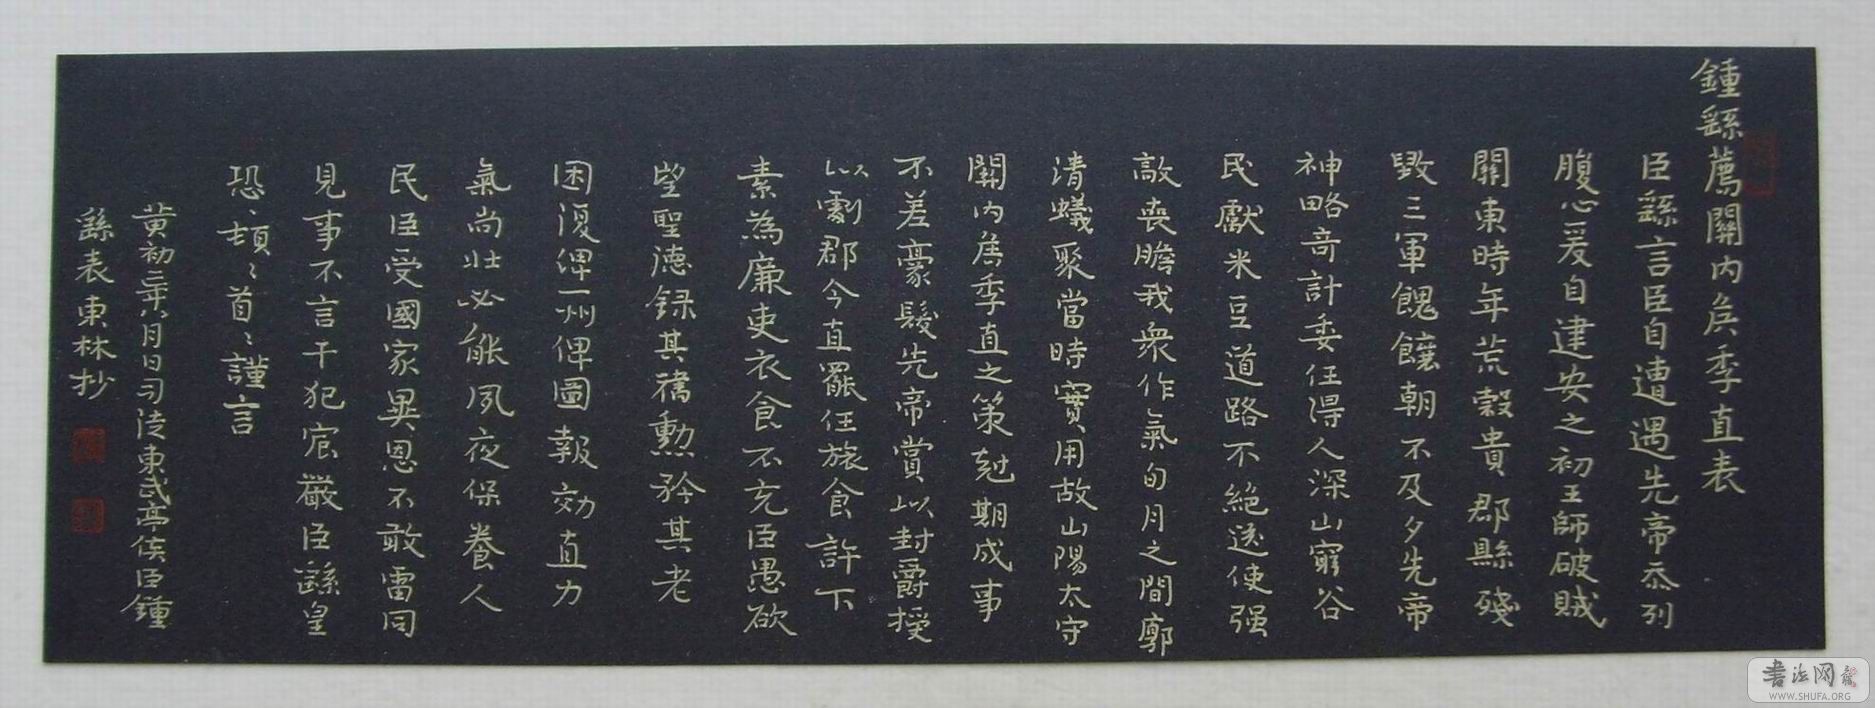 鍾繇薦關內侯季直表
臣繇言臣自遭遇先帝忝列
腹心爰自建安之初王師破賊
關東時年荒穀貴郡縣殘
毀三軍餽饟朝不及夕先帝
神略奇計委任得人深山窮谷
民獻米豆道路不絕遂使强
敵喪膽我衆作氣旬月之間廓
清蟻聚當時實用故山陽太守
關內侯季直之策尅期成事
不差豪髮先帝賞以封爵授
以劇郡今直罷任旅食許下
素為廉吏衣食不充臣愚欲
望聖德録其舊勳矜其老
困復俾一州俾圖報効直力
氣尚壯必能夙夜保養人
民臣受國家異恩不敢雷同
見事不言干犯宸嚴臣繇皇
恐、頓〻首〻謹言
黃初二年八月日司徒東武亭侯臣鍾
繇表東林抄
書法网
WWW.SHUFA.ORG